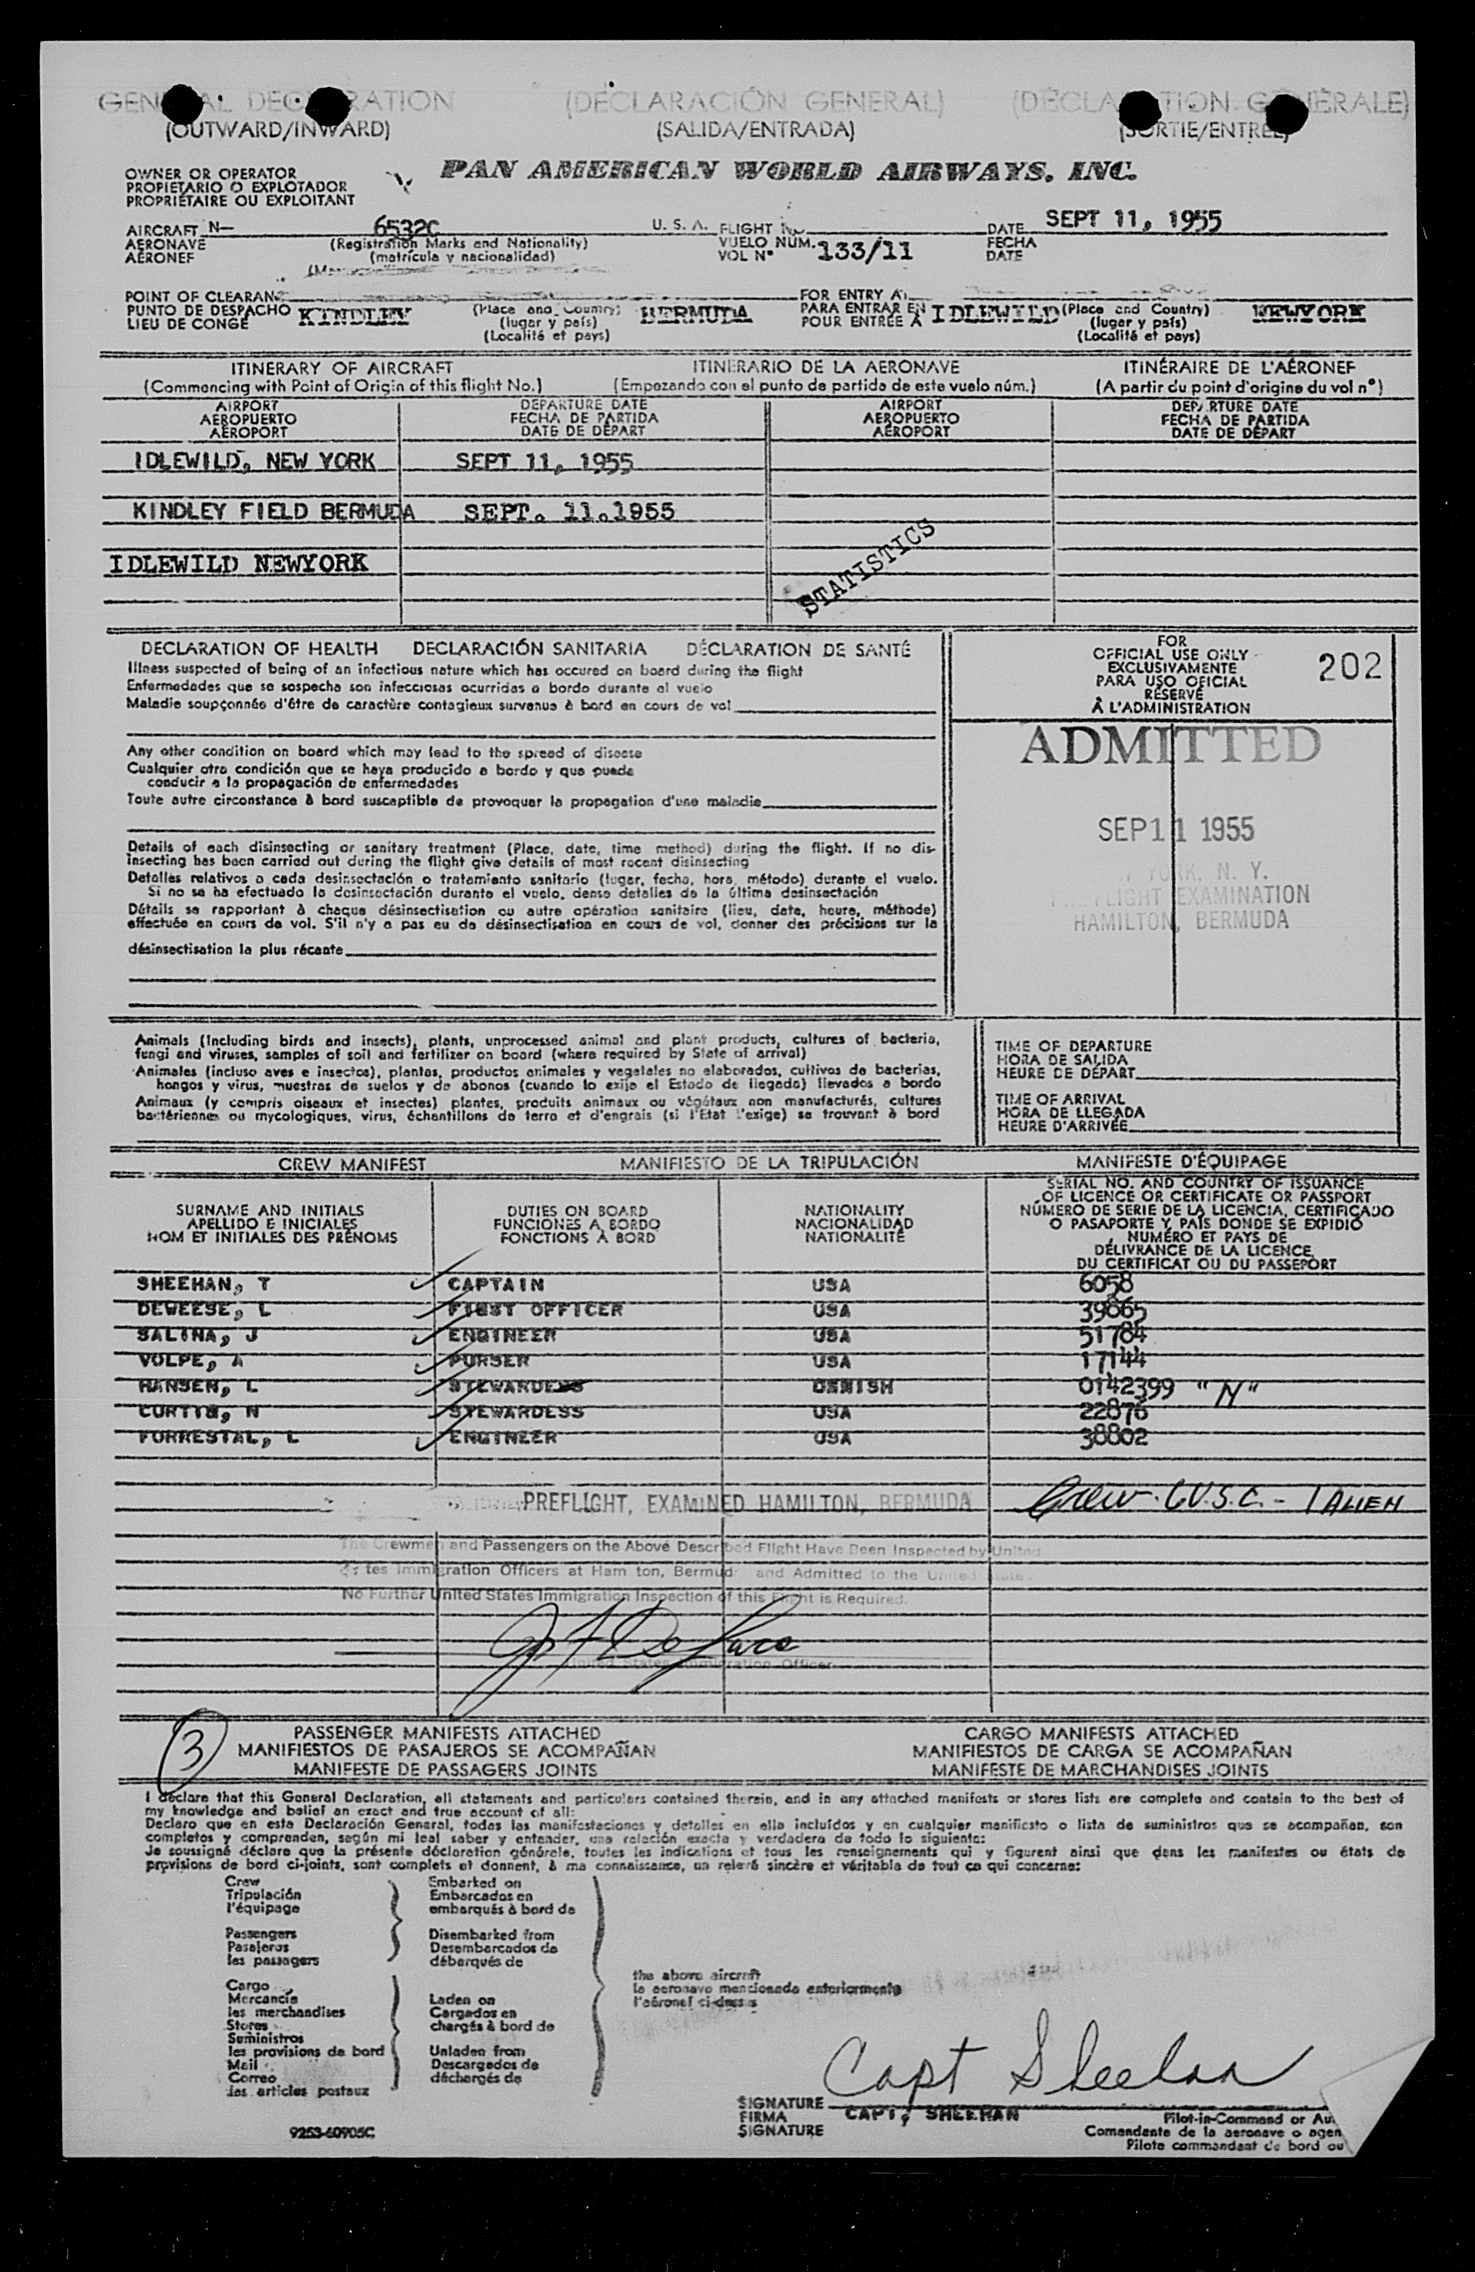 (DECLARACIÓN GENERAL)
(OUTWARD/INWARD) (SALIDA/ENTRADA)
PAN AMERICAN WORLD AIRWAYS, INC.
OWNER OR OPERATOR
PROPIETARIO O EXPLOTADOR
PROPRIÉTAIRE OU EXPLOITANT
AIRCRAFT N— 6532C U. S. A. FLIGHT DATE SEPT 11, 1955
AERONAVE (Registration Marks and Nationality) VUELO NUM. 133/11 FECHA
AÉRONEF (matrícula y nacionalidad) VOL N° DATE
POINT OF CLEARANCE FOR ENTRY AT
PUNTO DE DESPACHO KINDLEY (Place and Country) BERMUDA PARA ENTRAR EN IDLEWILD (Place and Country) NEWYORK
LIEU DE CONGÉ (lugar y país) POUR ENTRÉE A (lugar y país)
(Localité et pays) (Localité et pays)
ITINERARY OF AIRCRAFT ITINERARIO DE LA AERONAVE ITINÉRAIRE DE L'AÉRONEF
(Commencing with Point of Origin of this flight No.) (Empezando con el punto de partida de este vuelo núm.) (A partir du point d'origine du vol n°)
AIRPORT DEPARTURE DATE AIRPORT DEPARTURE DATE
AEROPUERTO FECHA DE PARTIDA AEROPUERTO FECHA DE PARTIDA
AÉROPORT DATE DE DÉPART AÉROPORT DATE DE DÉPART
IDLEWILD, NEW YORK SEPT 11, 1955
KINDLEY FIELD BERMUDA SEPT. 11.1955
IDLEWILD NEWYORK
STATISTICS
DECLARATION OF HEALTH DECLARACIÓN SANITARIA DÉCLARATION DE SANTÉ
Illness suspected of being of an infectious nature which has occured on board during the flight
Enfermedades que se sospecha son infecciosas ocurridas a bordo durante el vuelo
Maladie soupçonnée d'être de caractère contagieux survenue à bord en cours de vol
Any other condition on board which may lead to the spread of disease
Cualquier otra condición que se haya producido a bordo y que pueda
conducir a la propagación de enfermedades
Toute autre circonstance à bord susceptible de provoquer la propagation d'une maladie
Details of each disinsecting or sanitary treatment (Place, date, time method) during the flight. If no dis-
insecting has been carried out during the flight give details of most recent disinsecting
Detalles relativos a cada desinsectación o tratamiento sanitario (lugar, fecha, hora, método) durante el vuelo.
Si no se ha efectuado la desinsectación durante el vuelo, dense detalles de la última desinsectación
Détails se rapportant à chaque désinsectisation ou autre opération sanitaire (lieu, date, heure, méthode)
effectuée en cours de vol. S'il n'y a pas eu de désinsectisation en cours de vol, donner des précisions sur la
désinsectisation la plus récente
FOR
OFFICIAL USE ONLY
EXCLUSIVAMENTE
PARA USO OFICIAL
RÉSERVÉ
À L'ADMINISTRATION
202
ADMITTED
SEP 11 1955
YORK, N. Y.
FLIGHT EXAMINATION
HAMILTON, BERMUDA
Animals (Including birds and insects), plants, unprocessed animal and plant products, cultures of bacteria,
fungi and viruses, samples of soil and fertilizer on board (where required by State of arrival)
Animales (incluso aves e insectos), plantas, productos animales y vegetales no elaborados, cultivos de bacterias,
hongos y virus, muestras de suelos y de abonos (cuando lo exija el Estado de llegada) llevados a bordo
Animaux (y compris oiseaux et insectes) plantes, produits animaux ou végétaux non manufacturés, cultures
bactériennes ou mycologiques, virus, échantillons de terre et d'engrais (si l'Etat l'exige) se trouvant à bord
TIME OF DEPARTURE
HORA DE SALIDA
HEURE DE DÉPART
TIME OF ARRIVAL
HORA DE LLEGADA
HEURE D'ARRIVÉE
CREW MANIFEST MANIFIESTO DE LA TRIPULACIÓN MANIFESTE D'ÉQUIPAGE
SURNAME AND INITIALS
APELLIDO E INICIALES
NOM ET INITIALES DES PRÉNOMS
DUTIES ON BOARD
FUNCIONES A BORDO
FONCTIONS À BORD
NATIONALITY
NACIONALIDAD
NATIONALITÉ
SERIAL NO. AND COUNTRY OF ISSUANCE
OF LICENCE OR CERTIFICATE OR PASSPORT
NÚMERO DE SERIE DE LA LICENCIA, CERTIFICADO
O PASAPORTE Y PAÍS DONDE SE EXPIDIÓ
NUMÉRO ET PAYS DE
DÉLIVRANCE DE LA LICENCE,
DU CERTIFICAT OU DU PASSEPORT
SHEEHAN, T CAPTAIN USA 6058
DEWEESE, L FIRST OFFICER USA 39865
SALINA, J ENGINEER USA 51784
VOLPE, A PURSER USA 17144
HANSEN, L STEWARDESS DENISH 0142399 "N"
CURTIS, N STEWARDESS USA 22876
FORRESTAL, L ENGINEER USA 38802
PREFLIGHT, EXAMINED HAMILTON, BERMUDA
Crew - 6 U.S.C. - 1 ALIEN
The Crewmen and Passengers on the Above Described Flight Have Been Inspected by United
States Immigration Officers at Hamilton, Bermuda and Admitted to the United States.
No Further United States Immigration Inspection of this Flight is Required.
United States Immigration Officer
3
PASSENGER MANIFESTS ATTACHED CARGO MANIFESTS ATTACHED
MANIFIESTOS DE PASAJEROS SE ACOMPAÑAN MANIFIESTOS DE CARGA SE ACOMPAÑAN
MANIFESTE DE PASSAGERS JOINTS MANIFESTE DE MARCHANDISES JOINTS
I declare that this General Declaration, all statements and particulars contained therein, and in any attached manifests or stores lists are complete and contain to the best of
my knowledge and belief an exact and true account of all:
Declaro que en esta Declaración General, todas las manifestaciones y detalles en ella incluídos y en cualquier manifiesto o lista de suministros que se acompañan, son
completos y comprenden, según mi leal saber y entender, una relación exacta y verdadera de todo lo siguiente:
Je soussigné déclare que la présente déclaration générale, toutes les indications et tous les renseignements qui y figurent ainsi que dans les manifestes ou états de
provisions de bord ci-joints, sont complets et donnent, à ma connaissance, un relevé sincère et véritable de tout ce qui concerne:
Crew
Tripulación
l'équipage
Passengers
Pasajeros
les passagers
Cargo
Mercancía
les merchandises
Stores
Suministros
les provisions de bord
Mail
Correo
les articles postaux
Embarked on
Embarcados en
embarqués à bord de
Disembarked from
Desembarcados de
débarqués de
Laden on
Cargados en
chargés à bord de
Unladen from
Descargados de
déchargés de
the above aircraft
la aeronave mencionada anteriormente
l'aéronef ci-dessus
Capt Sheehan
SIGNATURE CAPT, SHEEHAN
FIRMA Pilot-in-Command or Au
SIGNATURE Comandante de la aeronave o agen
Pilote commandant de bord ou
9253-60905C